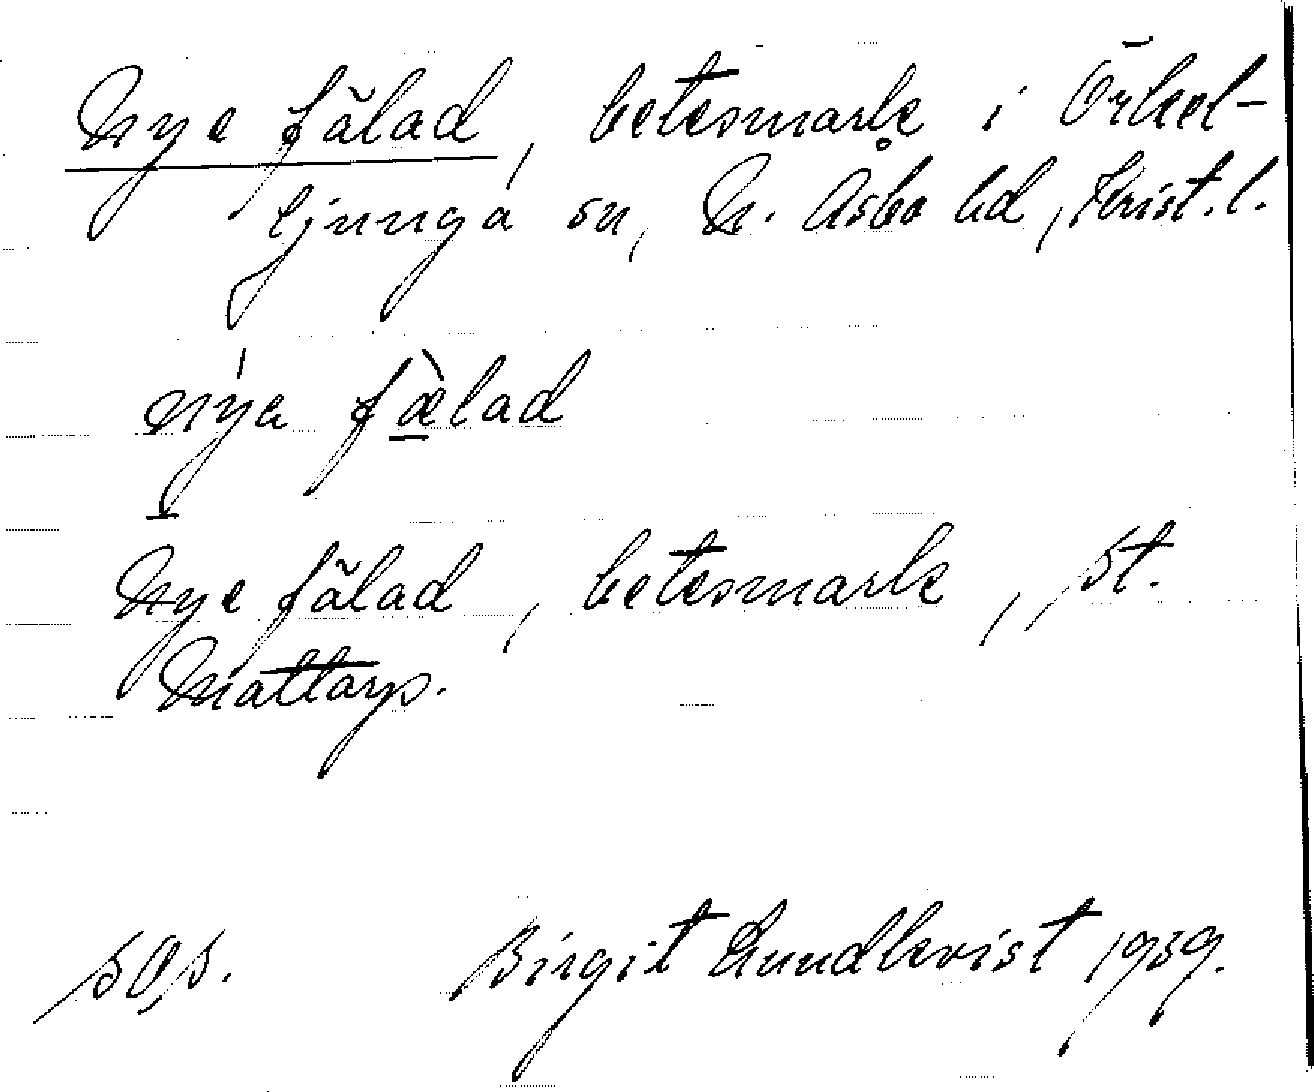 Nye fälad, betesmark i Örkel-
ljunga sn, N. Åsbo hd, Krist. l.
nýa fæ̀lad
Nye fälad, betesmark, St.
Mattarp.
SOS. Birgit Lundkvist 1939.